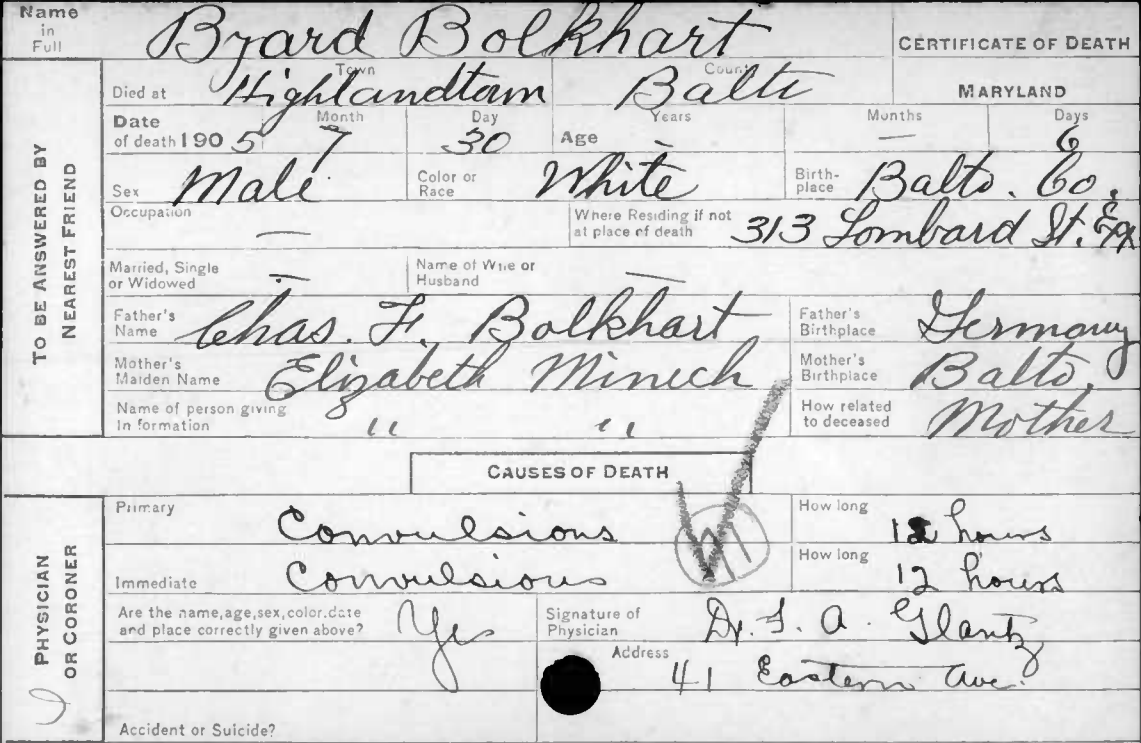 Name in Full Bzard Bolkhart CERTIFICATE OF DEATH
Town County
Died at Highlandtown Balto MARYLAND
Date Month Day Years Months Days
of death 1905 7 30 Age - — 6
Sex Male Color or Race White Birth-place Balto. Co.
Occupation — Where Residing if not at place of death 313 Lombard St. Ex
Married, Single or Widowed — Name of Wife or Husband —
Father's Name Chas. F. Bolkhart Father's Birthplace Germany
Mother's Maiden Name Elizabeth Minich Mother's Birthplace Balto.
Name of person giving In formation " " How related to deceased Mother
CAUSES OF DEATH
Primary Convulsions How long 12 hours
Immediate Convulsions How long 12 hours
Are the name,age,sex,color.date and place correctly given above? Yes Signature of Physician Dr. F. A. Glantz
Address 41 Eastern Ave.
Accident or Suicide?
TO BE ANSWERED BY NEAREST FRIEND
PHYSICIAN OR CORONER